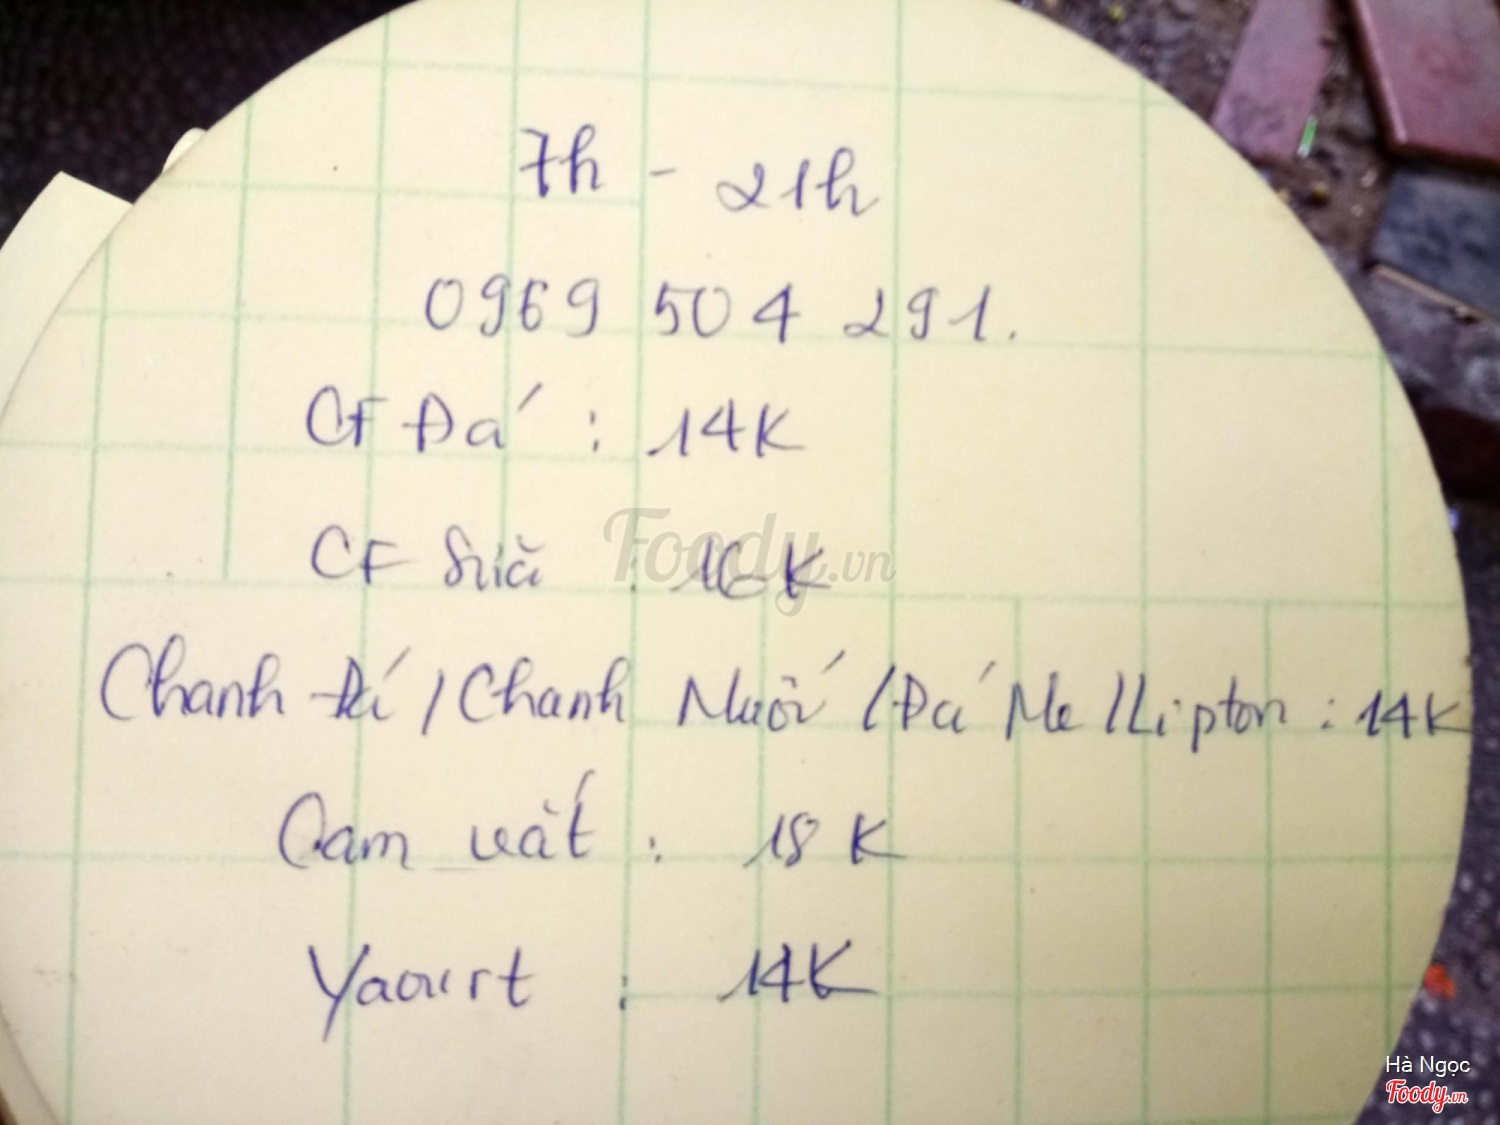 7h - 21h
0969 504 291.
CF Đá : 14K
CF Sữa : 16K
Foody.vn
Chanh Đá / Chanh Muối / Đá Me / Lipton : 14K
Cam vắt : 18K
Yaourt : 14K
Hà Ngọc
Foody.vn